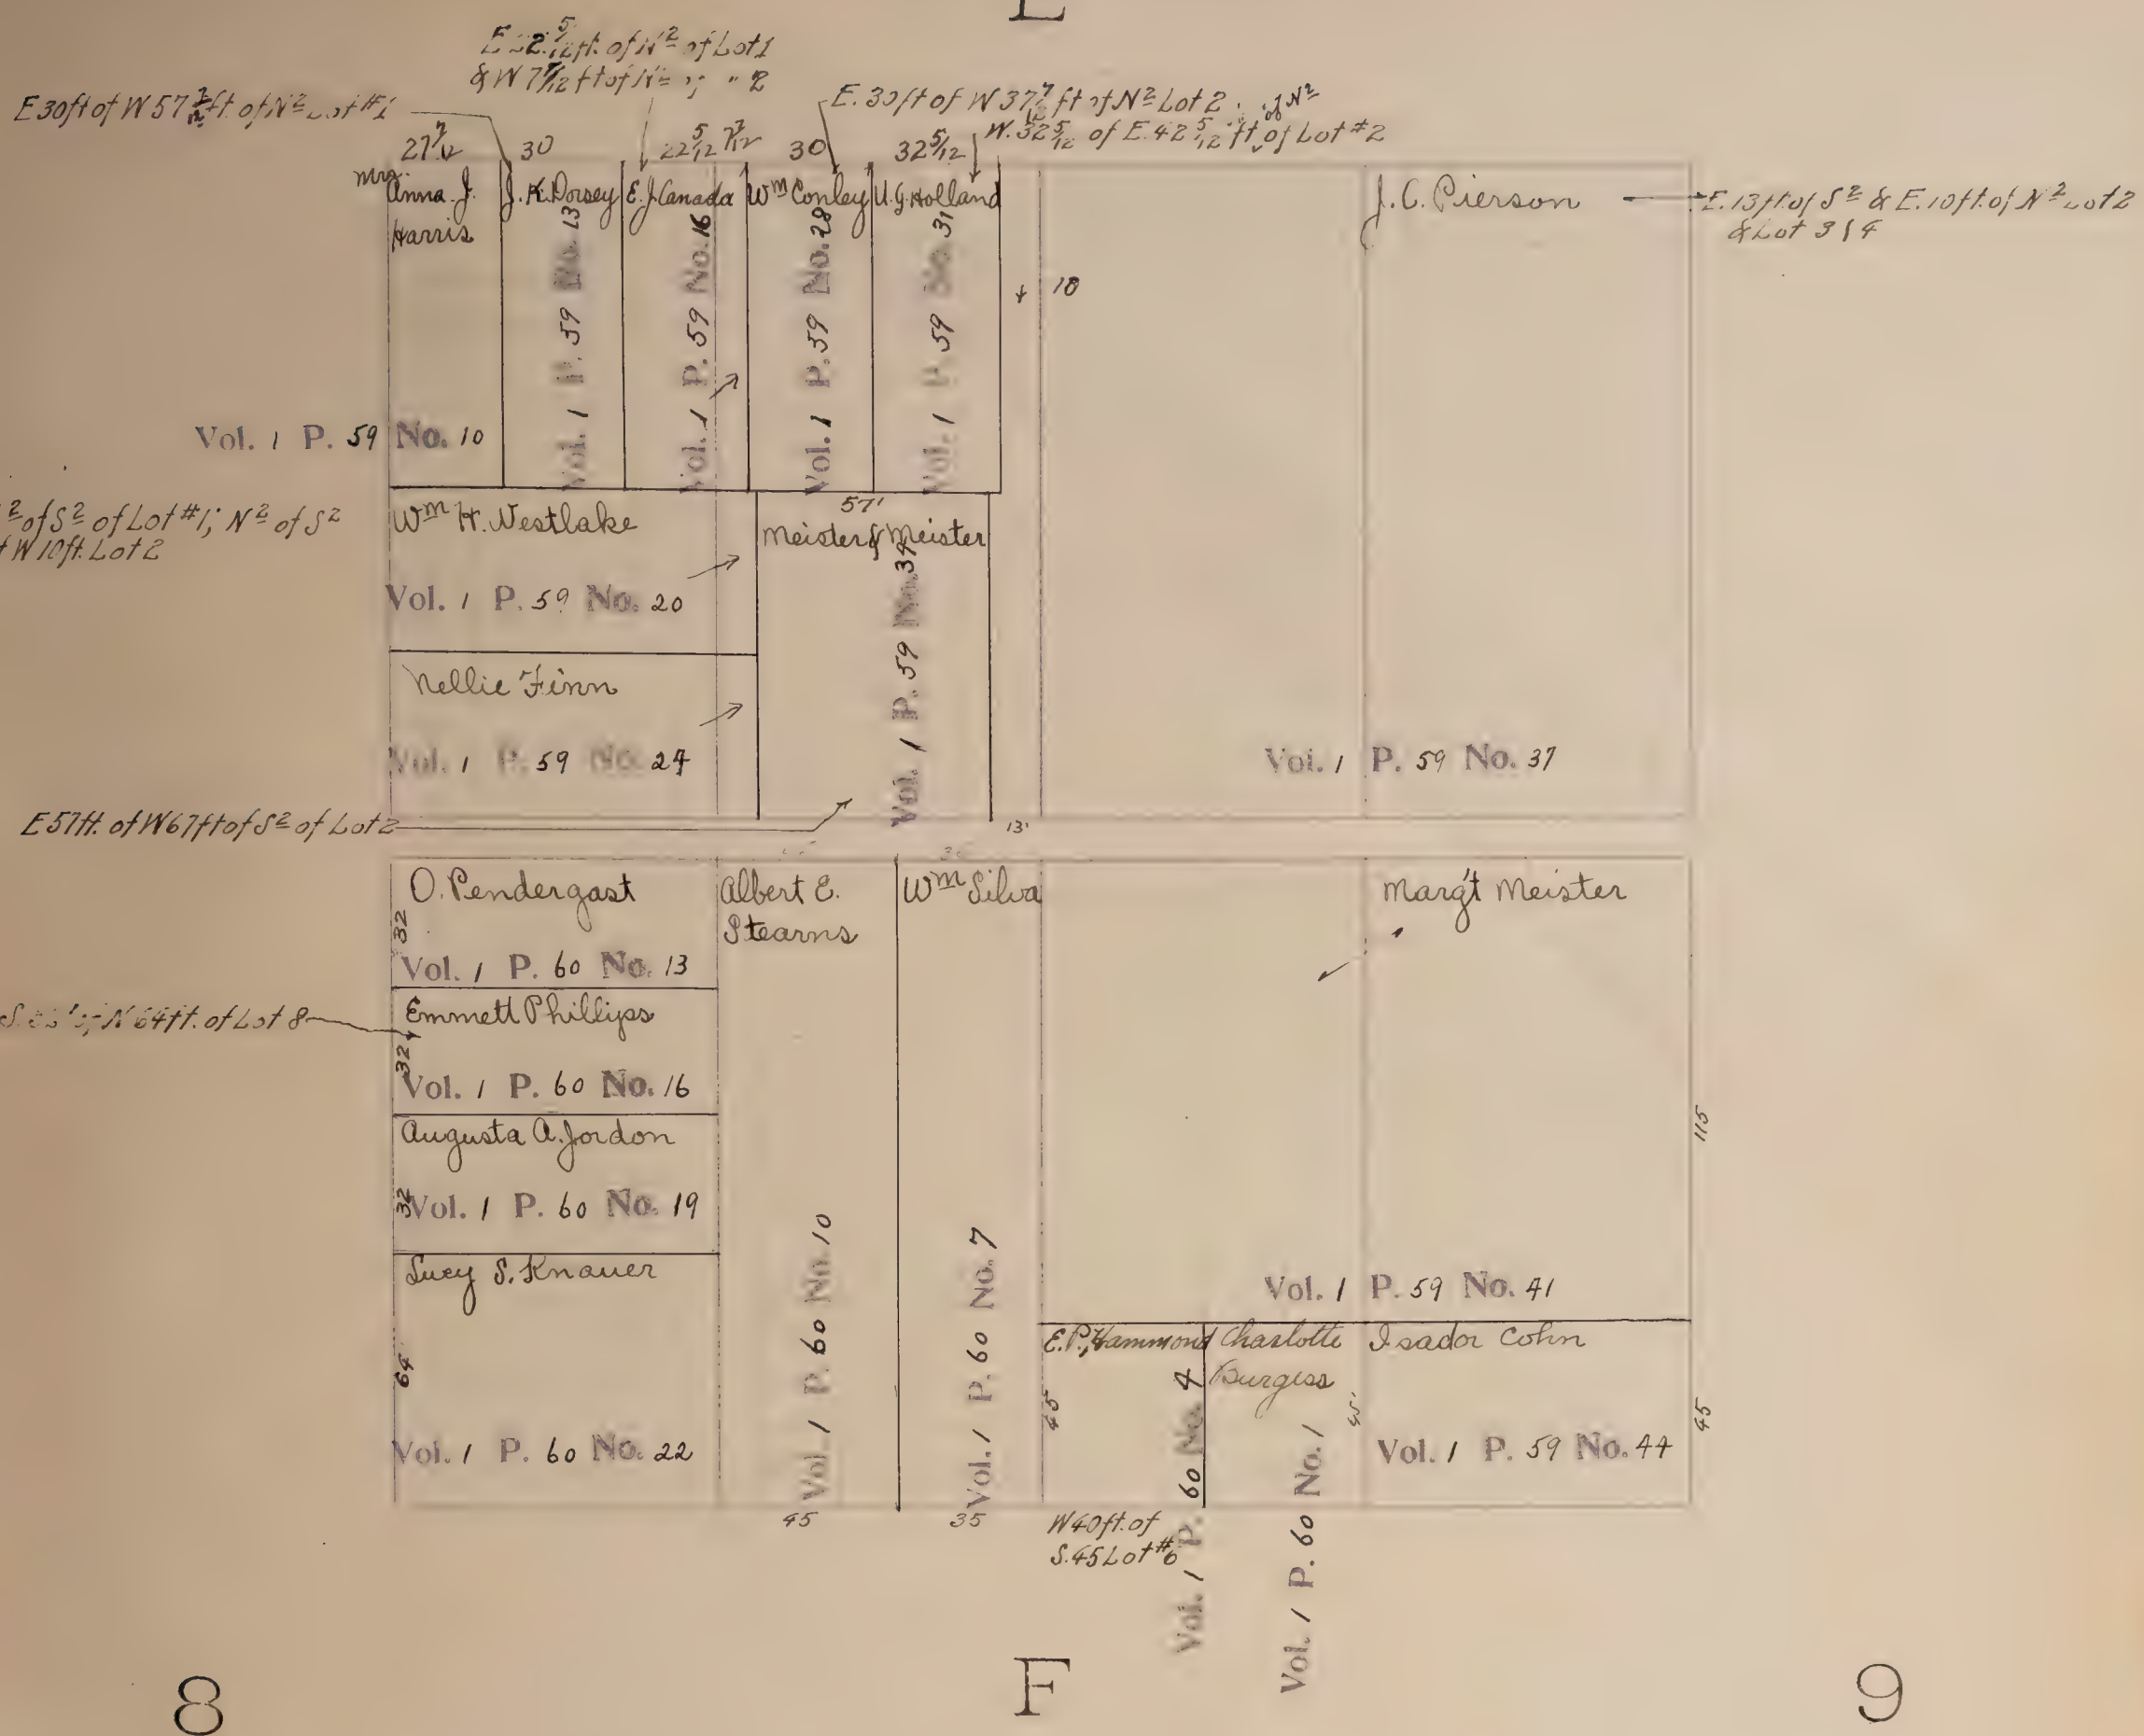 E
E 22 5/12 ft. of N 2 of Lot 1
& W 7 7/12 ft of N 2 " " 2
E 30ft of W 57 7/12 ft. of N 2 Lot #1
E. 30ft of W 37 7/12 ft of N 2 Lot 2
W. 32 5/12 of E. 42 5/12 ft of N 2 of Lot #2
27 7/12
30
22 5/12
7 7/12
30
32 5/12
Mrs.
Anna J.
Harris
J. K. Dorsey
E. J. Canada
Wm Conley
U. G. Holland
J. C. Pierson
E. 13ft. of S 2 & E. 10ft. of N 2 Lot 2
& Lot 3 & 4
10
Vol. 1 P. 59 No. 10
Vol. 1 P. 59 No. 13
Vol. 1 P. 59 No. 16
Vol. 1 P. 59 No. 28
Vol. 1 P. 59 No. 31
2 of S 2 of Lot #1; N 2 of S 2
W 10ft. Lot 2
Wm H. Westlake
Vol. 1 P. 59 No. 20
57'
Meister & Meister
Vol. 1 P. 59 No. 34
Nellie Finn
Vol. 1 P. 59 No. 24
Vol. 1 P. 59 No. 37
E 57ft. of W 67ft of S 2 of Lot 2
13'
O. Pendergast
32
Vol. 1 P. 60 No. 13
Albert E.
Stearns
Vol. 1 P. 60 No. 10
Wm Silva
Vol. 1 P. 60 No. 7
Marg't Meister
115
Vol. 1 P. 59 No. 41
N 64ft. of Lot 8
Emmett Phillips
32
Vol. 1 P. 60 No. 16
Augusta A. Jordon
32
Vol. 1 P. 60 No. 19
Lucy S. Knauer
64
Vol. 1 P. 60 No. 22
E. P. Hammond
45
Vol. 1 P. 60 No. 4
Charlotte
Burgess
45'
Vol. 1 P. 60 No. 1
Isador Cohn
45
Vol. 1 P. 59 No. 44
45
35
W 40ft. of
S. 45 Lot #6
8
F
9